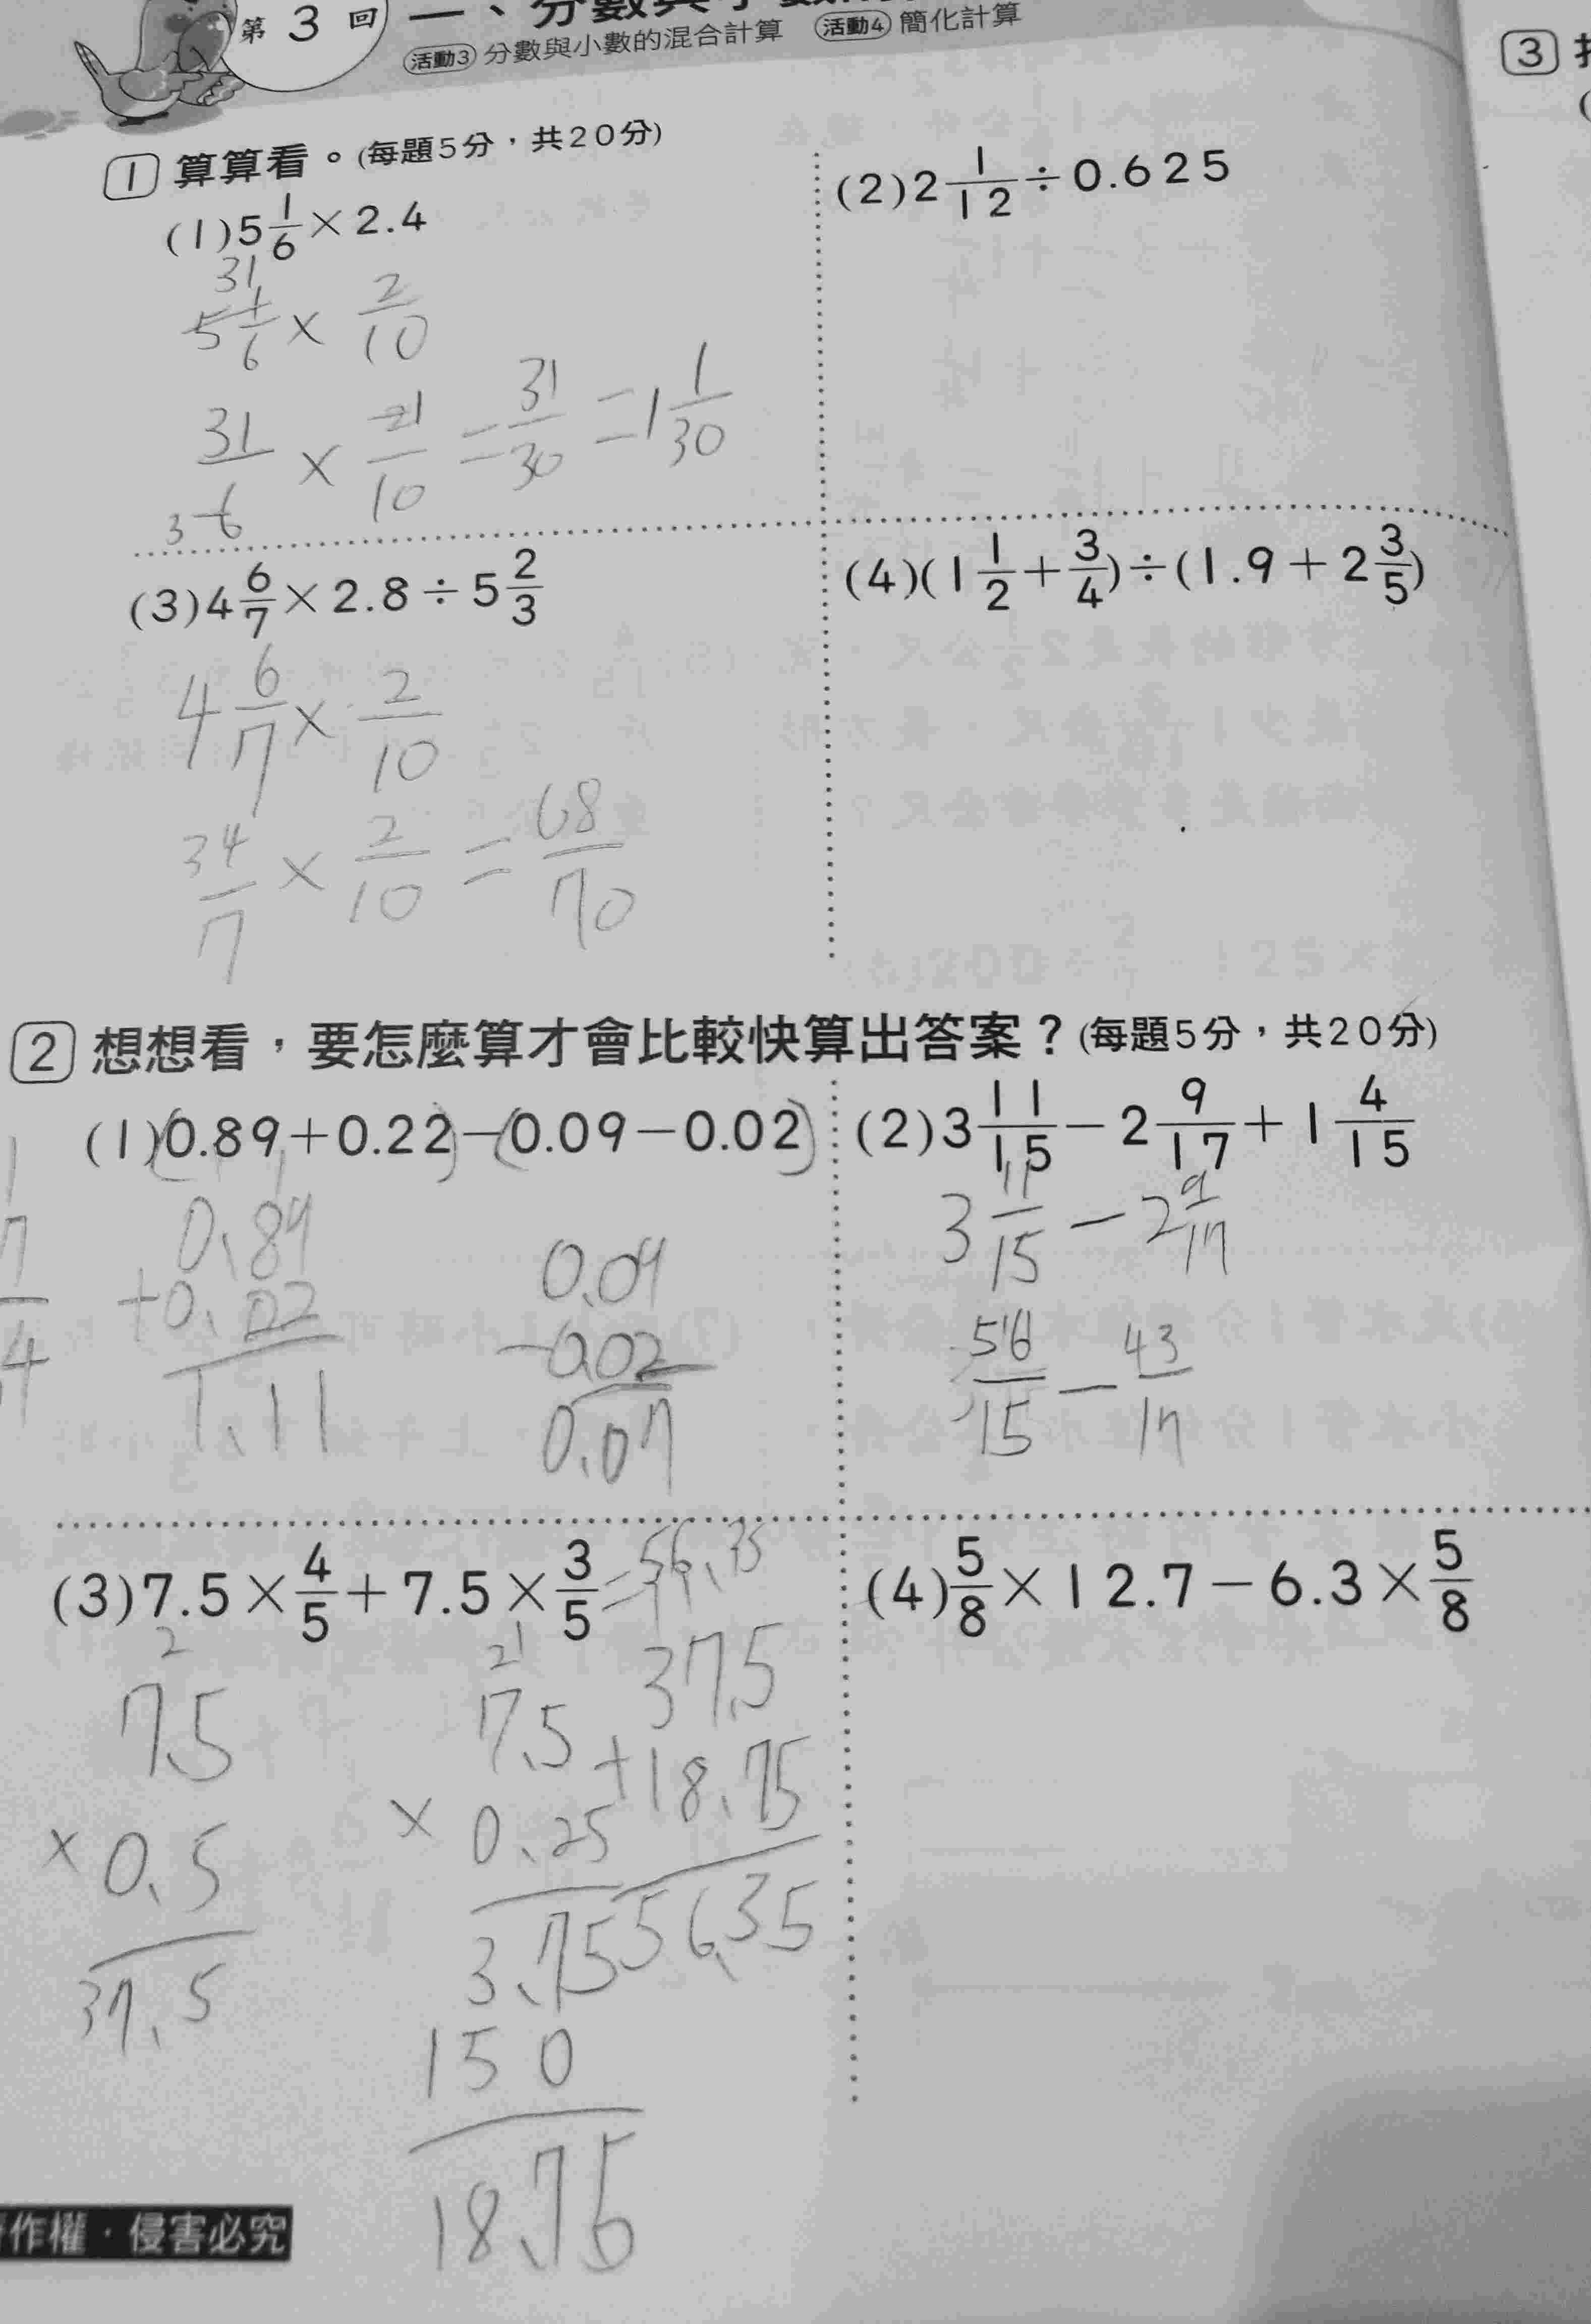 第3回
活動3 分數與小數的混合計算 活動4 簡化計算
3
1 算算看。(每題5分,共20分)
(1)5 1/6 × 2.4
31
5 1/6 × 2/10
31/6 × 21/10 = 31/30 = 1 1/30
3
(2)2 1/12 ÷ 0.625
(3)4 6/7 × 2.8 ÷ 5 2/3
4 6/7 × 2/10
34/7 × 2/10 = 68/70
(4)(1 1/2 + 3/4) ÷ (1.9 + 2 3/5)
2 想想看,要怎麼算才會比較快算出答案?(每題5分,共20分)
(1)(0.89+0.22)-(0.09-0.02)
0.89
+0.22
1.11
0.09
-0.02
0.07
(2)3 11/15 - 2 9/17 + 1 4/15
3 11/15 - 2 9/17
56/15 - 43/17
(3)7.5 × 4/5 + 7.5 × 3/5 = 56.35
2
7.5
×0.5
37.5
21
7.5
×0.25
3.75
150
18.75
37.5
+18.75
56.35
(4)5/8 × 12.7 - 6.3 × 5/8
作權・侵害必究